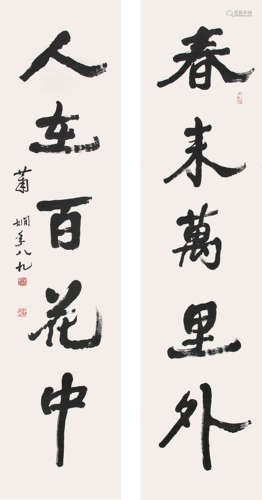 春来萬里外
人在百花中
蕭嫻年八九